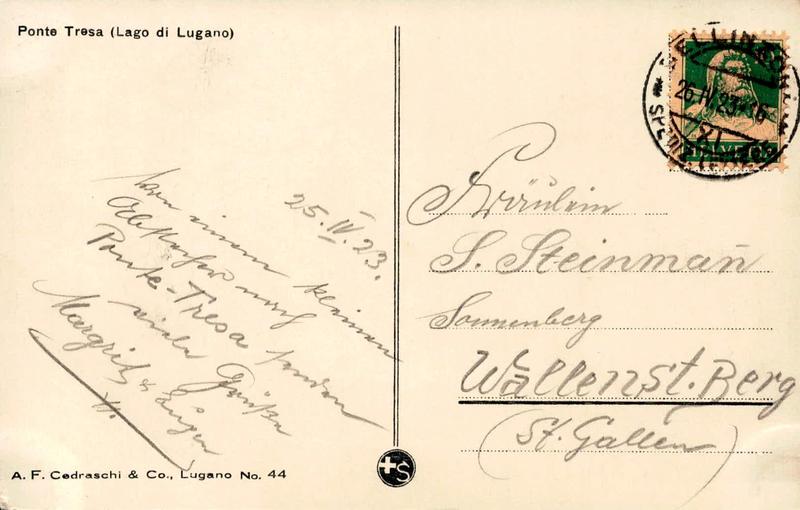 Ponte Tresa (Lago di Lugano)
25.IV.23.
Von einem kleinen
Abstecher nach
Ponte-Tresa senden
viele Grüße
Margrit & Eugen
BELLINZONA
26.IV.23.-16
HELVETIA
Fräulein
S. Steinman̄
Sonnenberg
Wallenst. Berg
(St. Gallen)
A. F. Cedraschi & Co., Lugano No. 44
S